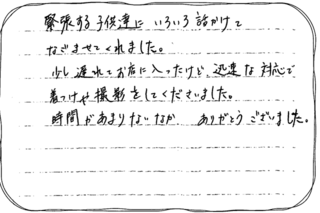 緊張する子供達に いろいろ 話かけて
なごませてくれました。
少し遅れてお店に入ったけど、迅速な対応で
着つけや撮影をしてくださいました。
時間があまりないなか ありがとうございました。